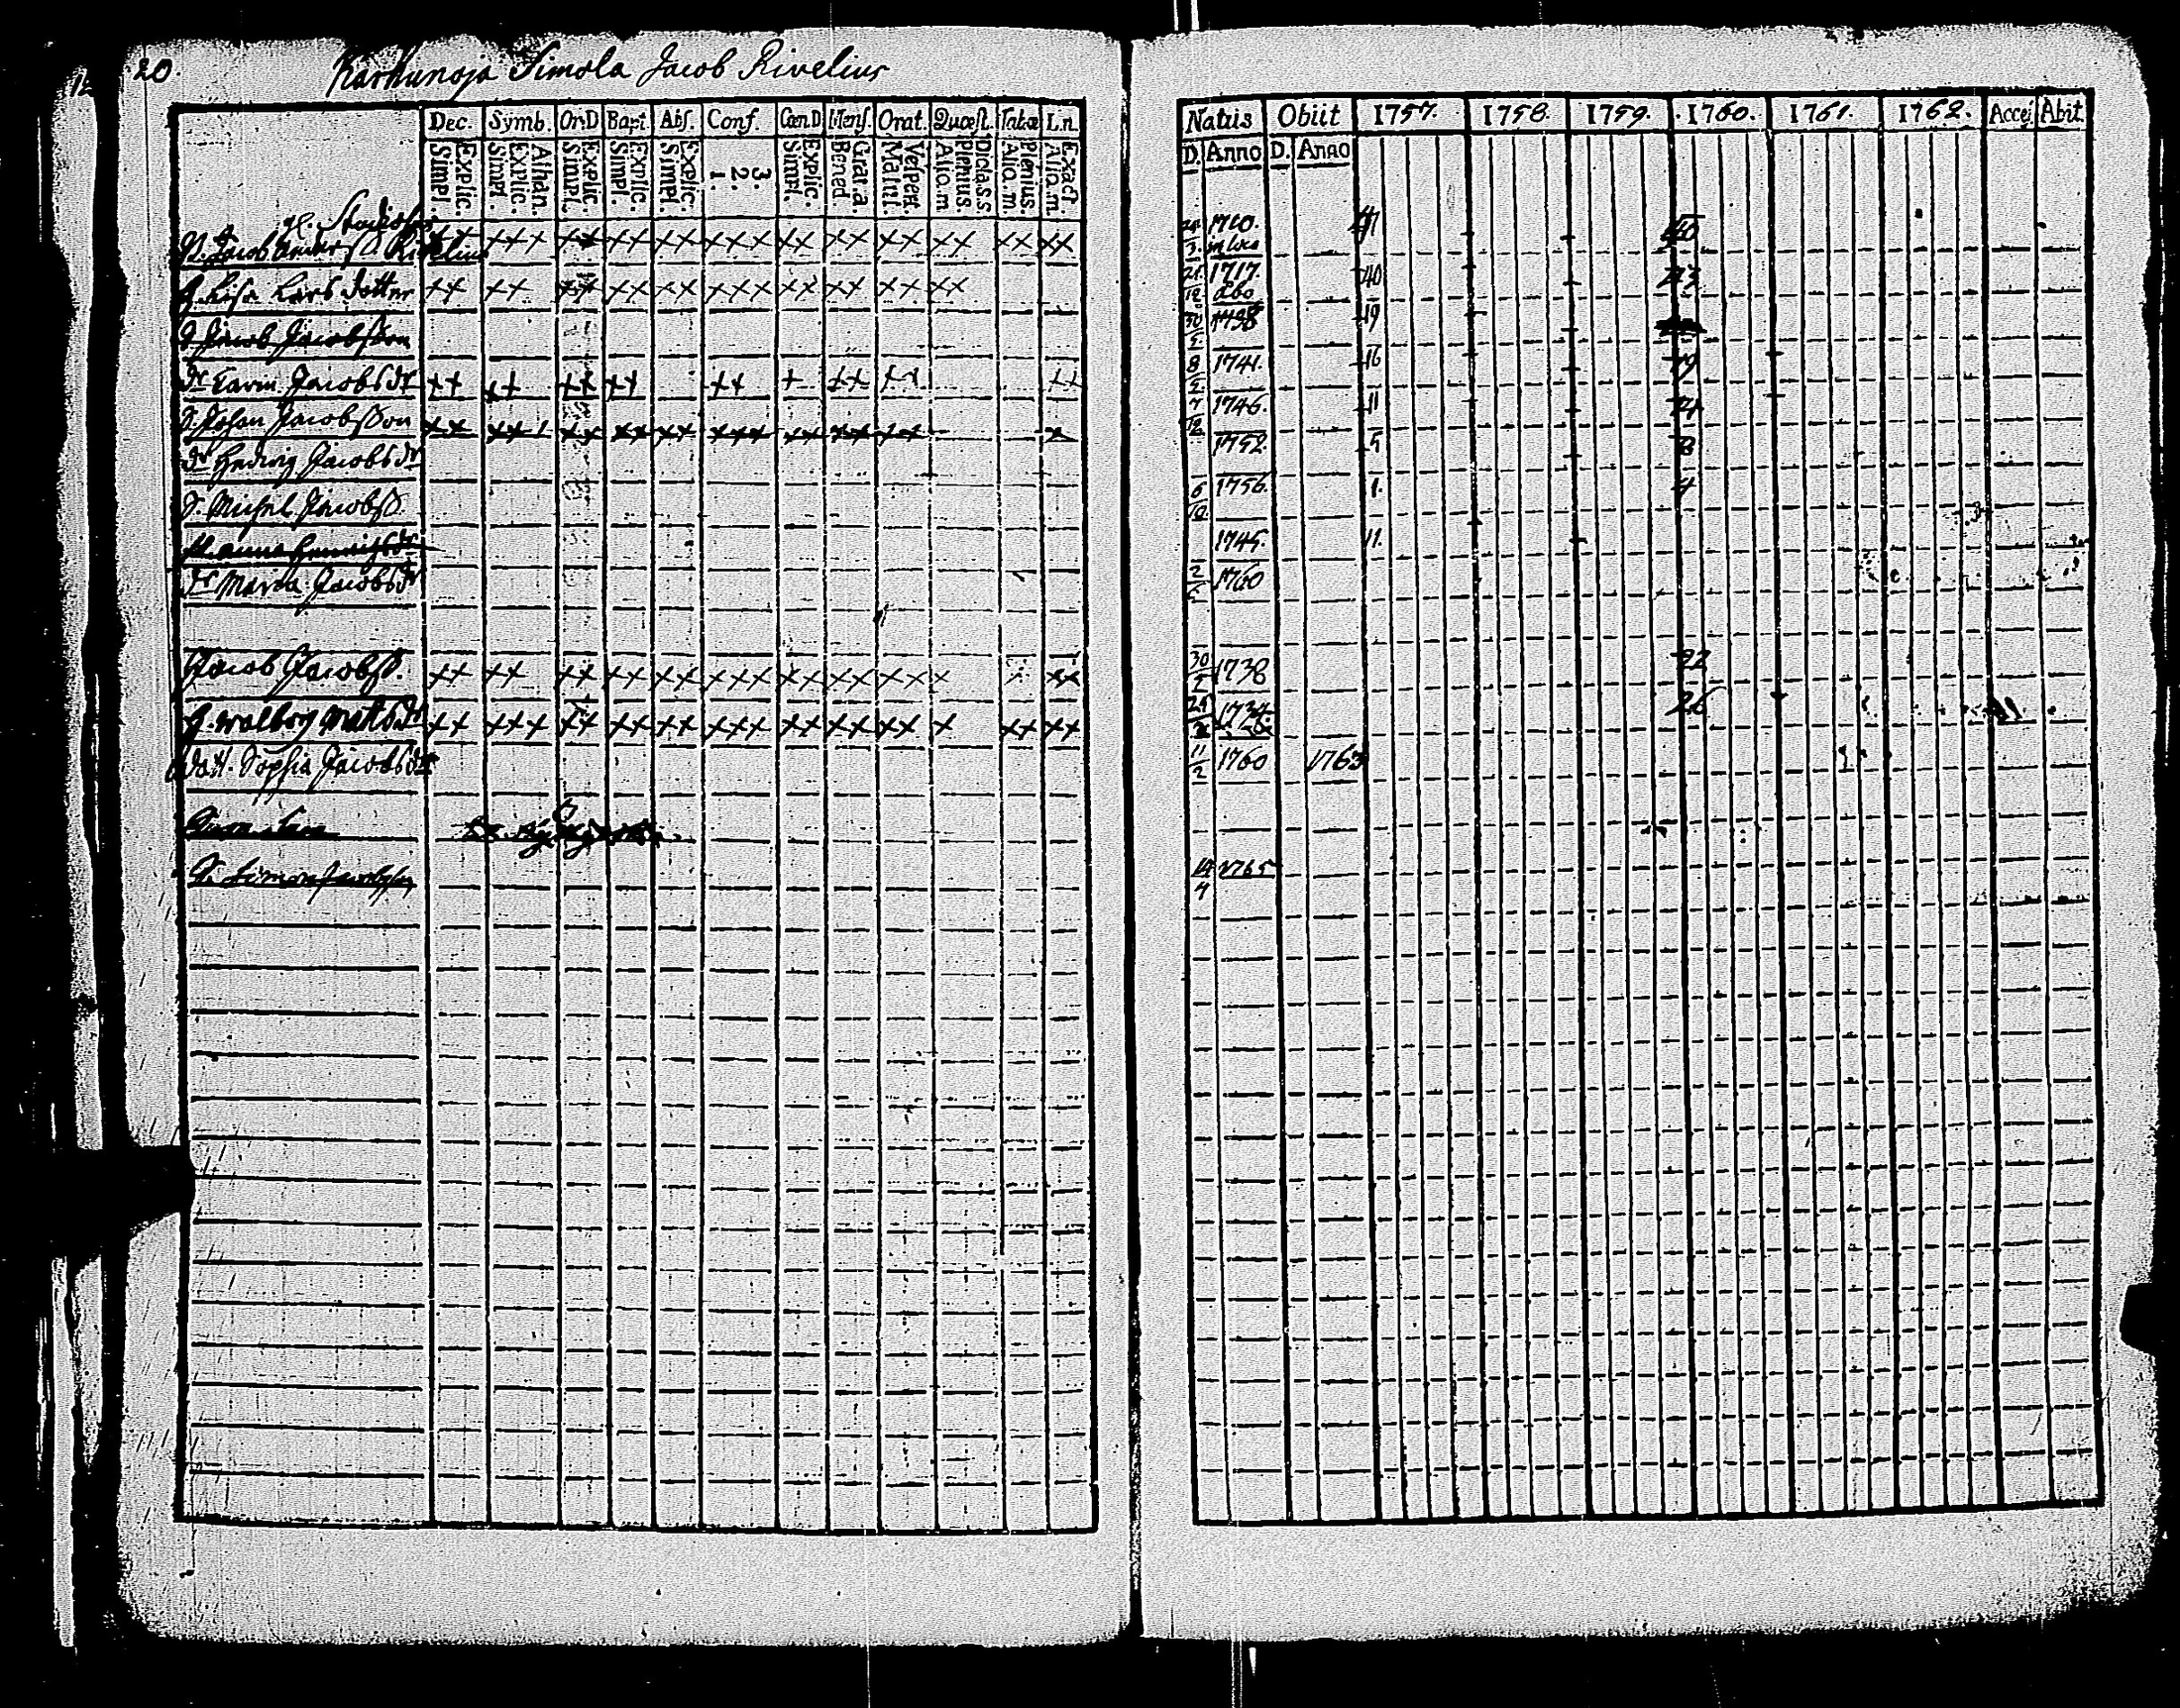 20.
Karhunoja Simola Jacob Rivelius
Dec. Symb. Or:D Bapt. Abs. Conf. Cœn D Mens. Orat. Quæst. Tabæ L.n. Natus Obiit 1757. 1758. 1759. 1760. 1761. 1762. Acces Abit
Explic. Simpl. Athan. Explic. Simpl. Explic. Simpl. Explic. Simpl. Explic. Simpl. 3. 2. 1. Explic. Simpl. Grat.a. Bened. Vespert. Matut. Dicta.s.s. Plenius. Aliq.m Plenius. Aliq.m Exact. Aliq.m. D. Anno D. Anno
Jacob xx xxx xx xx xx xxx xx xx xx xx xx xx
Lisa Lars dotter xx xx xx xx xx xxx xx xx xx xx 21/12 1717. Åbo 40 43
Jacob Jacobsson 30 1738 19
Dr Carin Jacobsdr xx xx xx xx xx x xx xx xx 8 1741. 16 19
S. Johan Jacobsson xx xx xx xx xx xxx xx xx xx x 7/12 1746. 11 14
Dr Hedvig Jacobsdr 1752. 5 8
S. Michel Jacobss. 6/10. 1756. 1. 4
Anna 1745. 11.
Dr Maria Jacobsdr 2 1760
Jacob Jacobss. xx xx xx xx xx xxx xx xx xx x xx 30 1738 22
H. Walborg Matts dr xx xxx xx xx xx xxx xx xx xx x xx xx 1734 26
Dott. Sophia Jacobsdr 11/2 1760 1763
Simon 14/4 1765